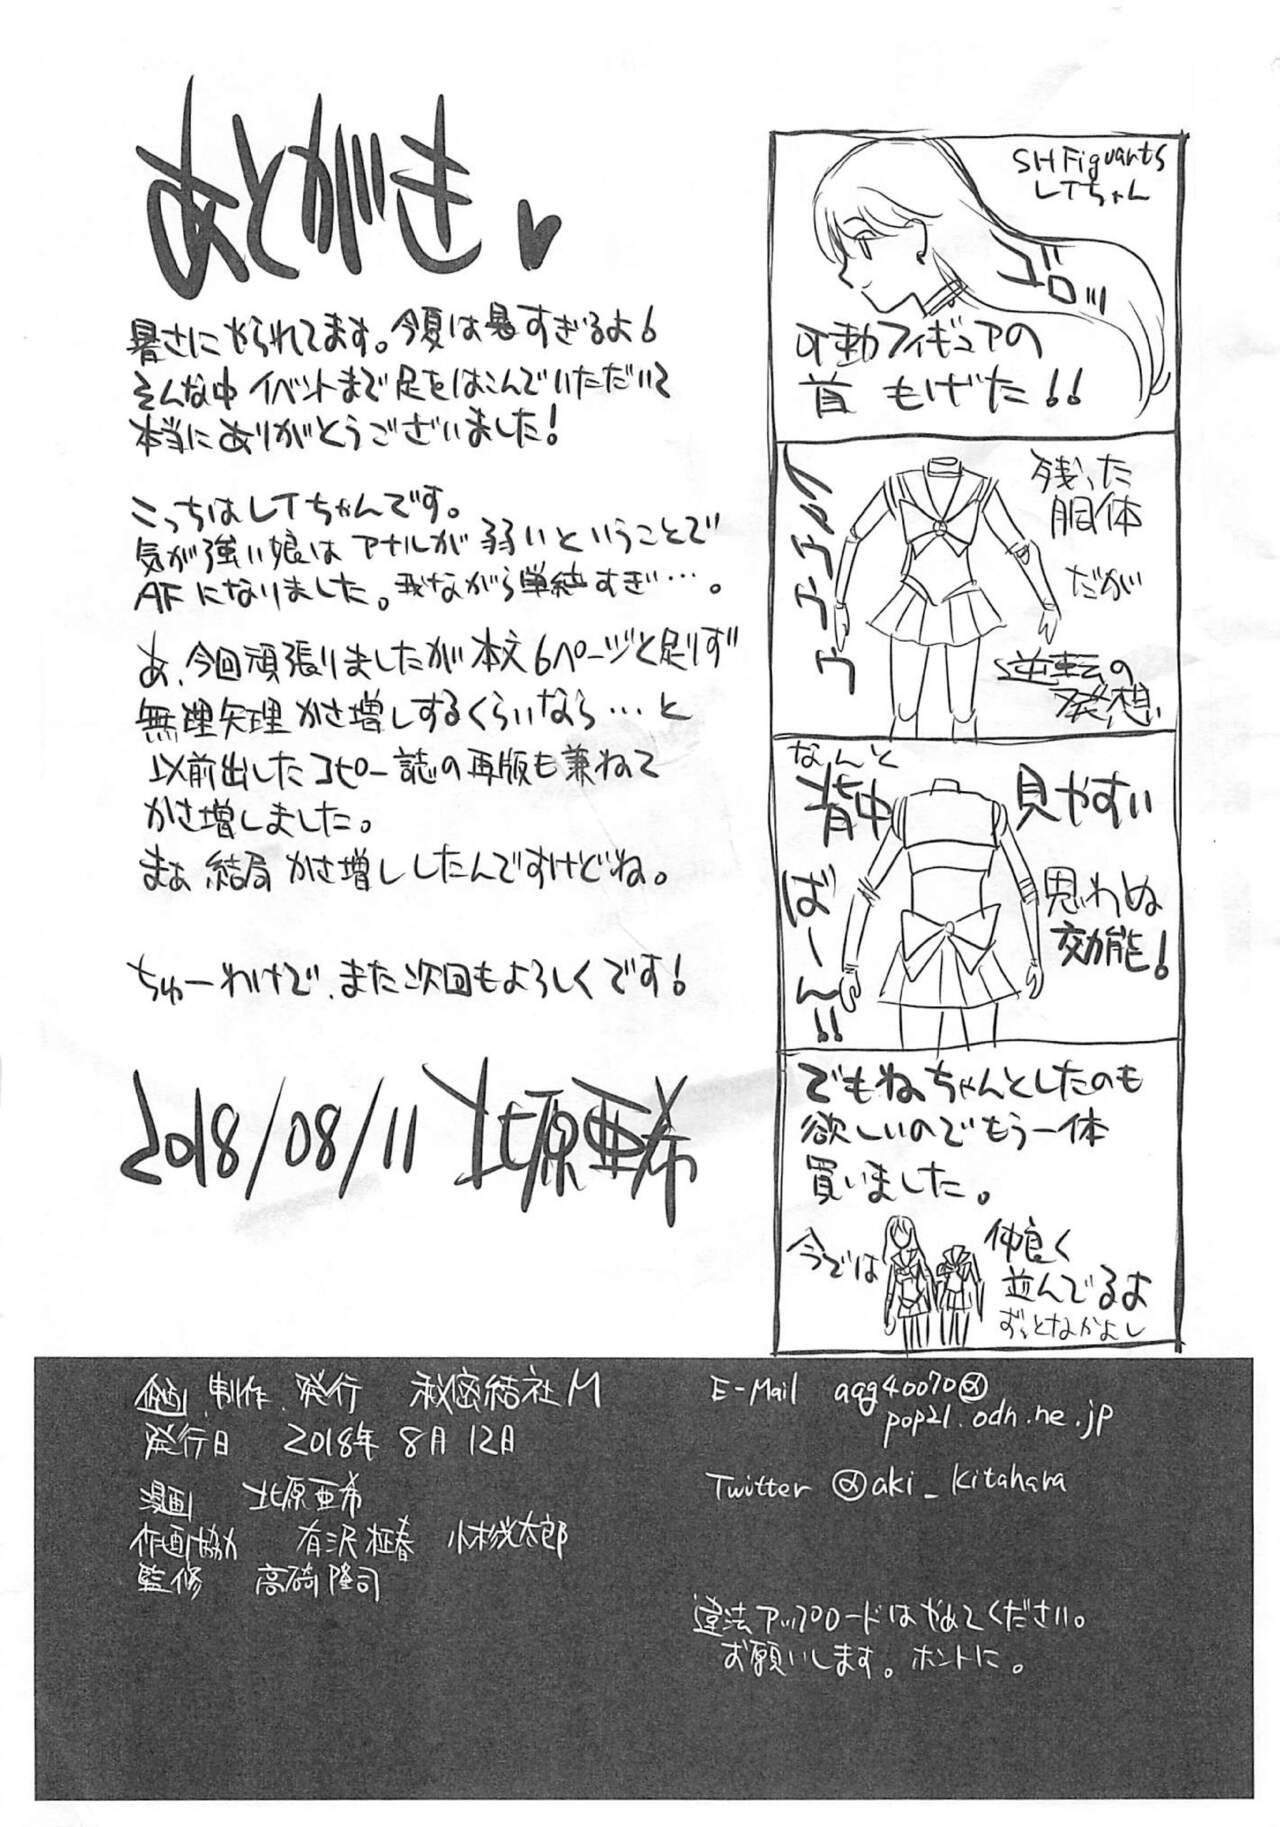 あとがき♥
暑さにやられてます。今夏は暑すぎるよ6
そんな中イベントまで足をはこんでいただいて
本当にありがとうございました!
こっちはレイちゃんです。
気が強い娘はアナルが弱いということで
AFになりました。我ながら単純すぎ…。
あ、今回頑張りましたが本文6ページと足りず
無理矢理かさ増しするくらいなら…と
以前出したコピー誌の再版も兼ねて
かさ増しました。
まぁ結局かさ増ししたんですけどね。
ちゅーわけで、また次回もよろしくです!
2018/08/11 北原亜希
SHFiguarts
レイちゃん
ゴロッ
可動フィギュアの
首もげた!!
残った
胴体
だが
逆転の
発想
なんと
背中
見やすい
ばーん!!
思わぬ
効能!
でもねちゃんとしたのも
欲しいのでもう一体
買いました。
今では
仲良く
並んでるよ
ずっとなかよし
企画、制作、発行 秘密結社M
発行日 2018年8月12日
漫画 北原亜希
作画協力 有沢 小杉光太郎
監修 高碕隆司
E-Mail agg40070@
pop21.odn.ne.jp
Twitter @aki_kitahara
違法アップロードはやめてください。
お願いします。ホントに。